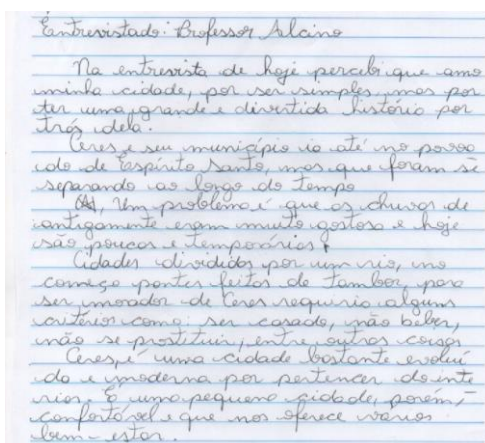 Entrevistado: Professor Alcino
Na entrevista de hoje percebi que amo
minha cidade, por ser simples, mas por
ter uma grande e divertida história por
trás dela.
Ceres e seu município ia até no povoa
do de Espírito Santo, mas que foram se
separando ao longo do tempo
Um problema é que as chuvas de
antigamente eram muito gostosa e hoje
são poucas e temporárias.
Cidades divididas por um rio, no
começo pontes feitas de tambor, para
ser morador de Ceres requiria alguns
critérios como: ser casado, não beber,
não se prostituir, entre outras coisas
Ceres, é uma cidade bastante evoluí
da e moderna por pertencer do inte
rior. É uma pequena cidade, porém,
confortável e que nos oferece varios
bem-estar.